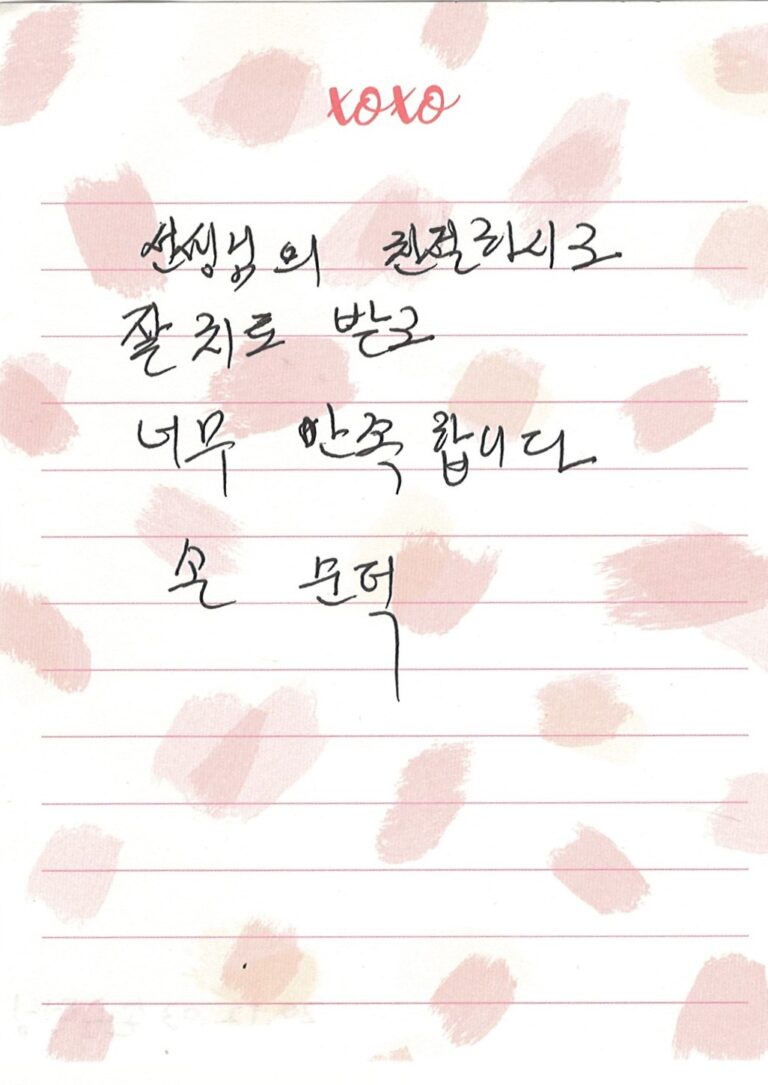 xoxo
선생님의 친절하시고
잘 치료 받고
너무 만족 합니다
손 문덕